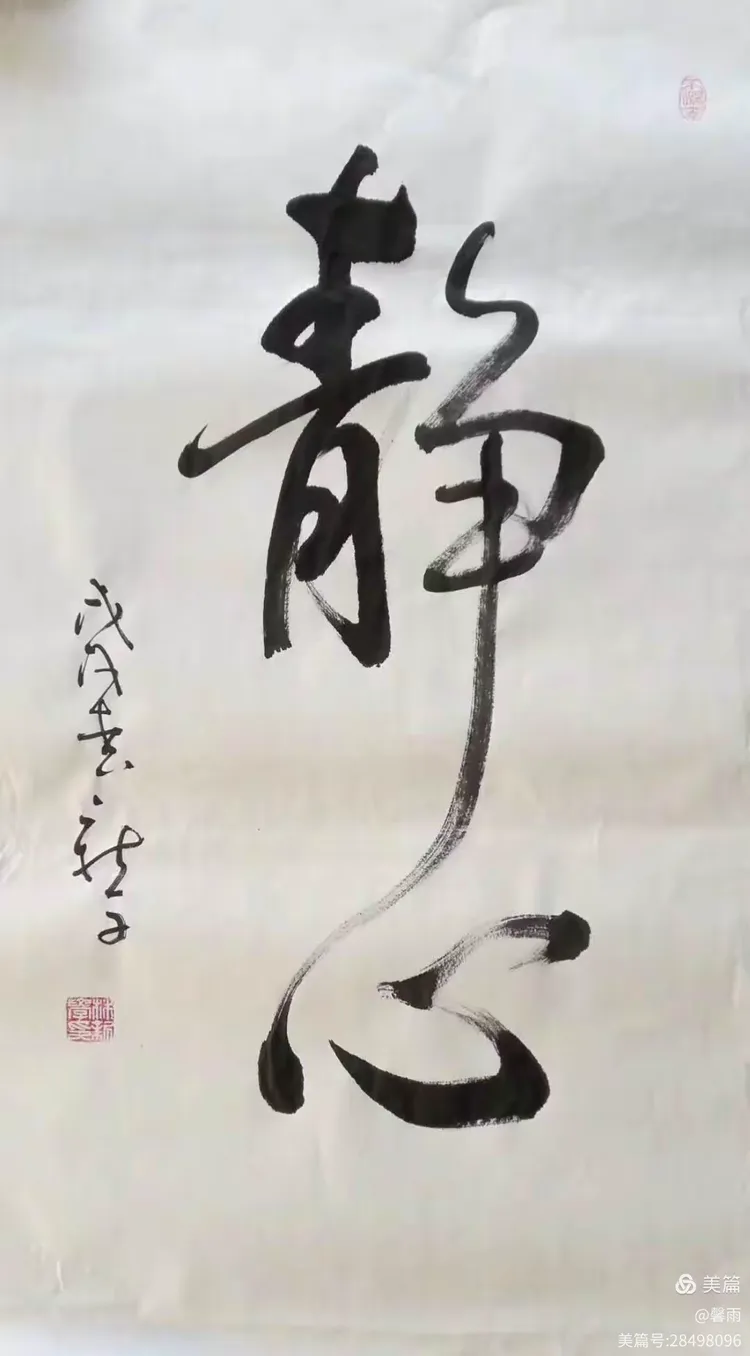 静心
戊戌春
美篇
@馨雨
美篇号:28498096